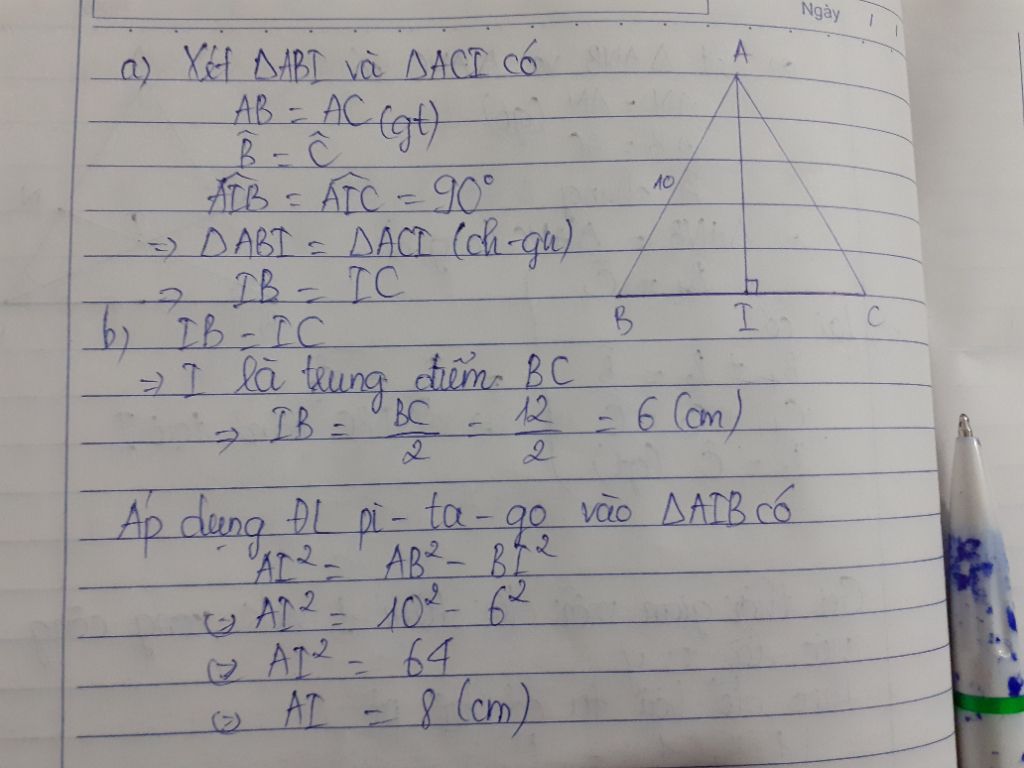 Ngày / /
a) Xét ΔABI và ΔACI có
AB = AC (gt)
B̂ = Ĉ
AIB̂ = AIĈ = 90°
=> ΔABI = ΔACI (ch-gn)
=> IB = IC
A
10
B I C
b) IB = IC
=> I là trung điểm BC
=> IB = BC/2 = 12/2 = 6 (cm)
Áp dụng ĐL pi-ta-go vào ΔAIB có
AI² = AB² - BI²
(=) AI² = 10² - 6²
(=) AI² = 64
(=) AI = 8 (cm)